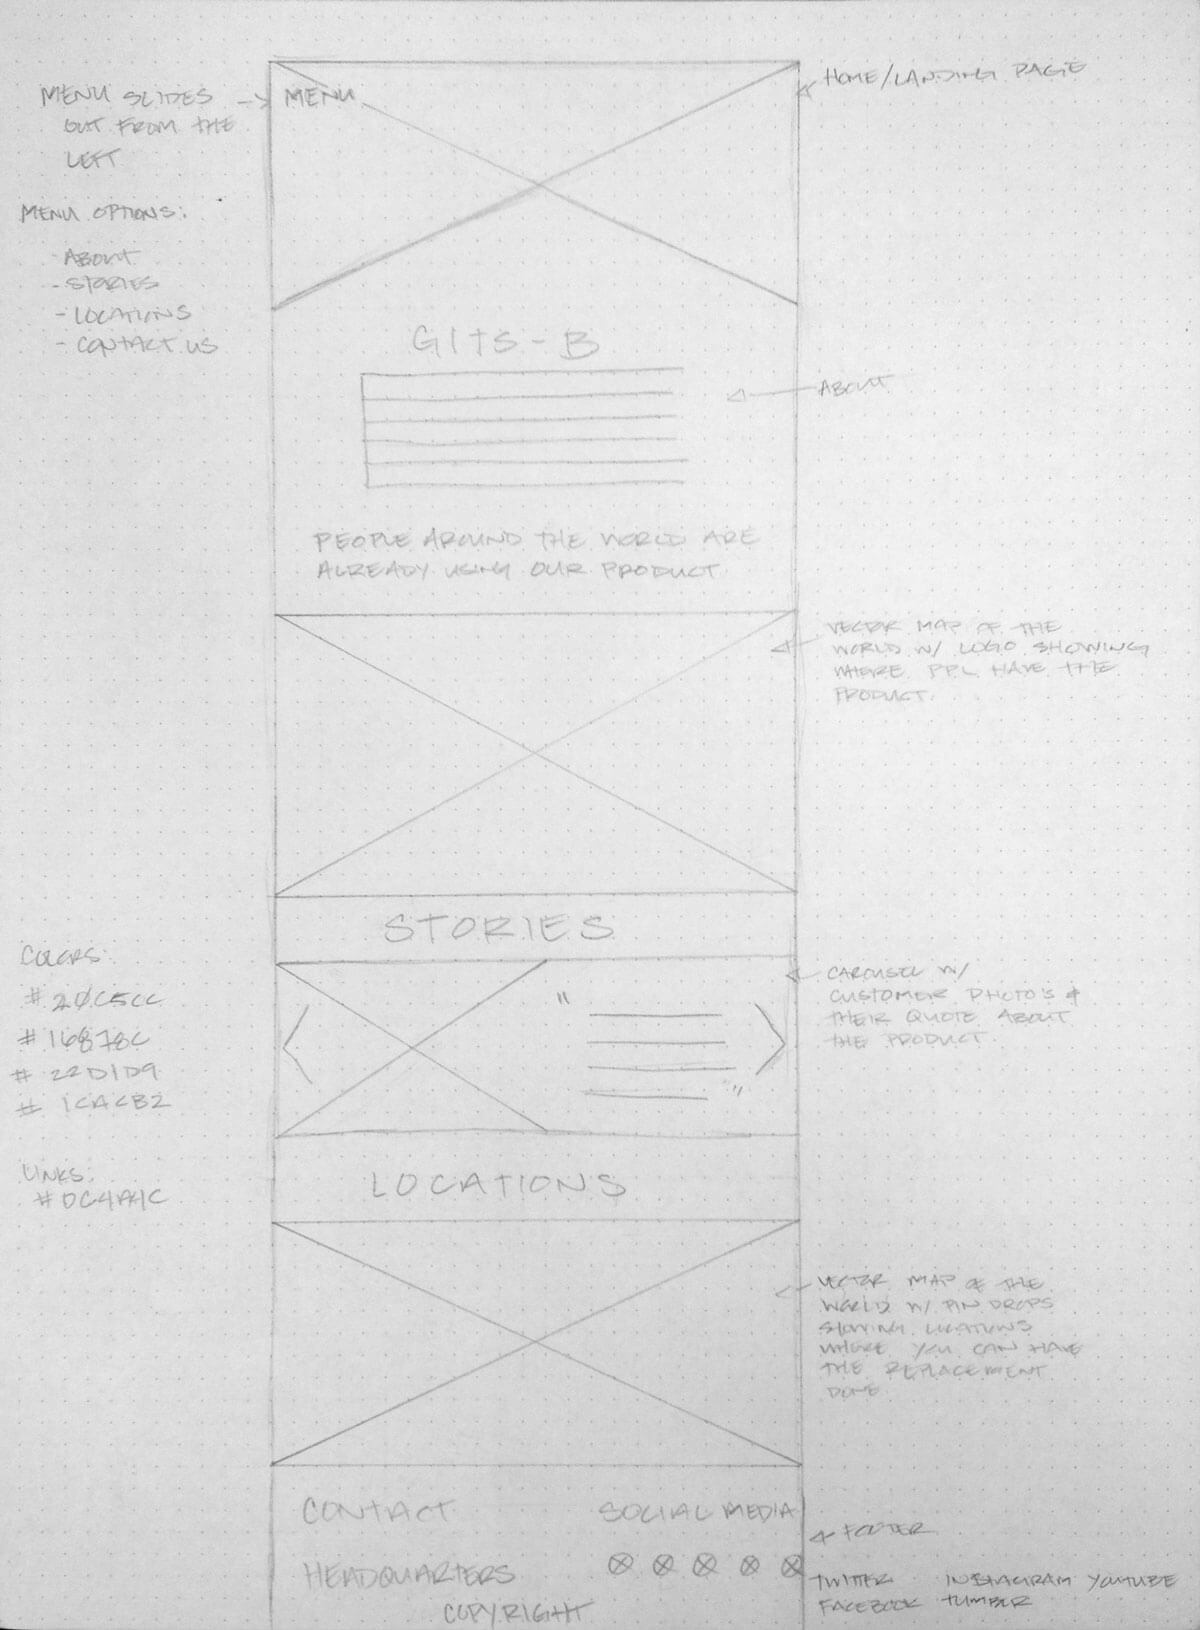 HOME/LANDING PAGE
MENU SLIDES
OUT FROM THE
LEFT
MENU
MENU OPTIONS:
- ABOUT
- STORIES
- LOCATIONS
- CONTACT US
GITS-B
ABOUT
PEOPLE AROUND THE WORLD ARE
ALREADY USING OUR PRODUCT
VECTOR MAP OF THE
WORLD W/ LOGO SHOWING
WHERE PPL HAVE THE
PRODUCT.
STORIES
COLORS:
# 20C5CC
# 16878C
# 22D1D9
# 1CACB2
CAROUSEL W/
CUSTOMER PHOTO'S &
THEIR QUOTE ABOUT
THE PRODUCT.
"
"
LINKS:
# DC4A4C
LOCATIONS
VECTOR MAP OF THE
WORLD W/ PIN DROPS
SHOWING LOCATIONS
WHERE YOU CAN HAVE
THE REPLACEMENT
DONE
CONTACT
SOCIAL MEDIA
FOOTER
HEADQUARTERS
COPYRIGHT
TWITTER INSTAGRAM YOUTUBE
FACEBOOK TUMBLR